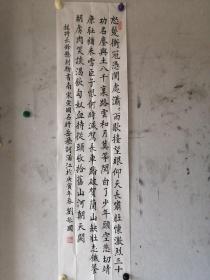 怒髮衝冠憑闌處瀟〻雨歇抬望眼仰天長嘯壯懷激烈三十
功名塵與土八千里路雲和月莫等閑白了少年頭空悲切靖
康恥猶未雪臣子恨何時滅駕長車踏破賀蘭山缺壯志飢餐
胡虜肉笑談渴飲匈奴血待從頭收拾舊山河朝天闕
南宋愛國名將岳飛詞滿江紅庚寅年春劉